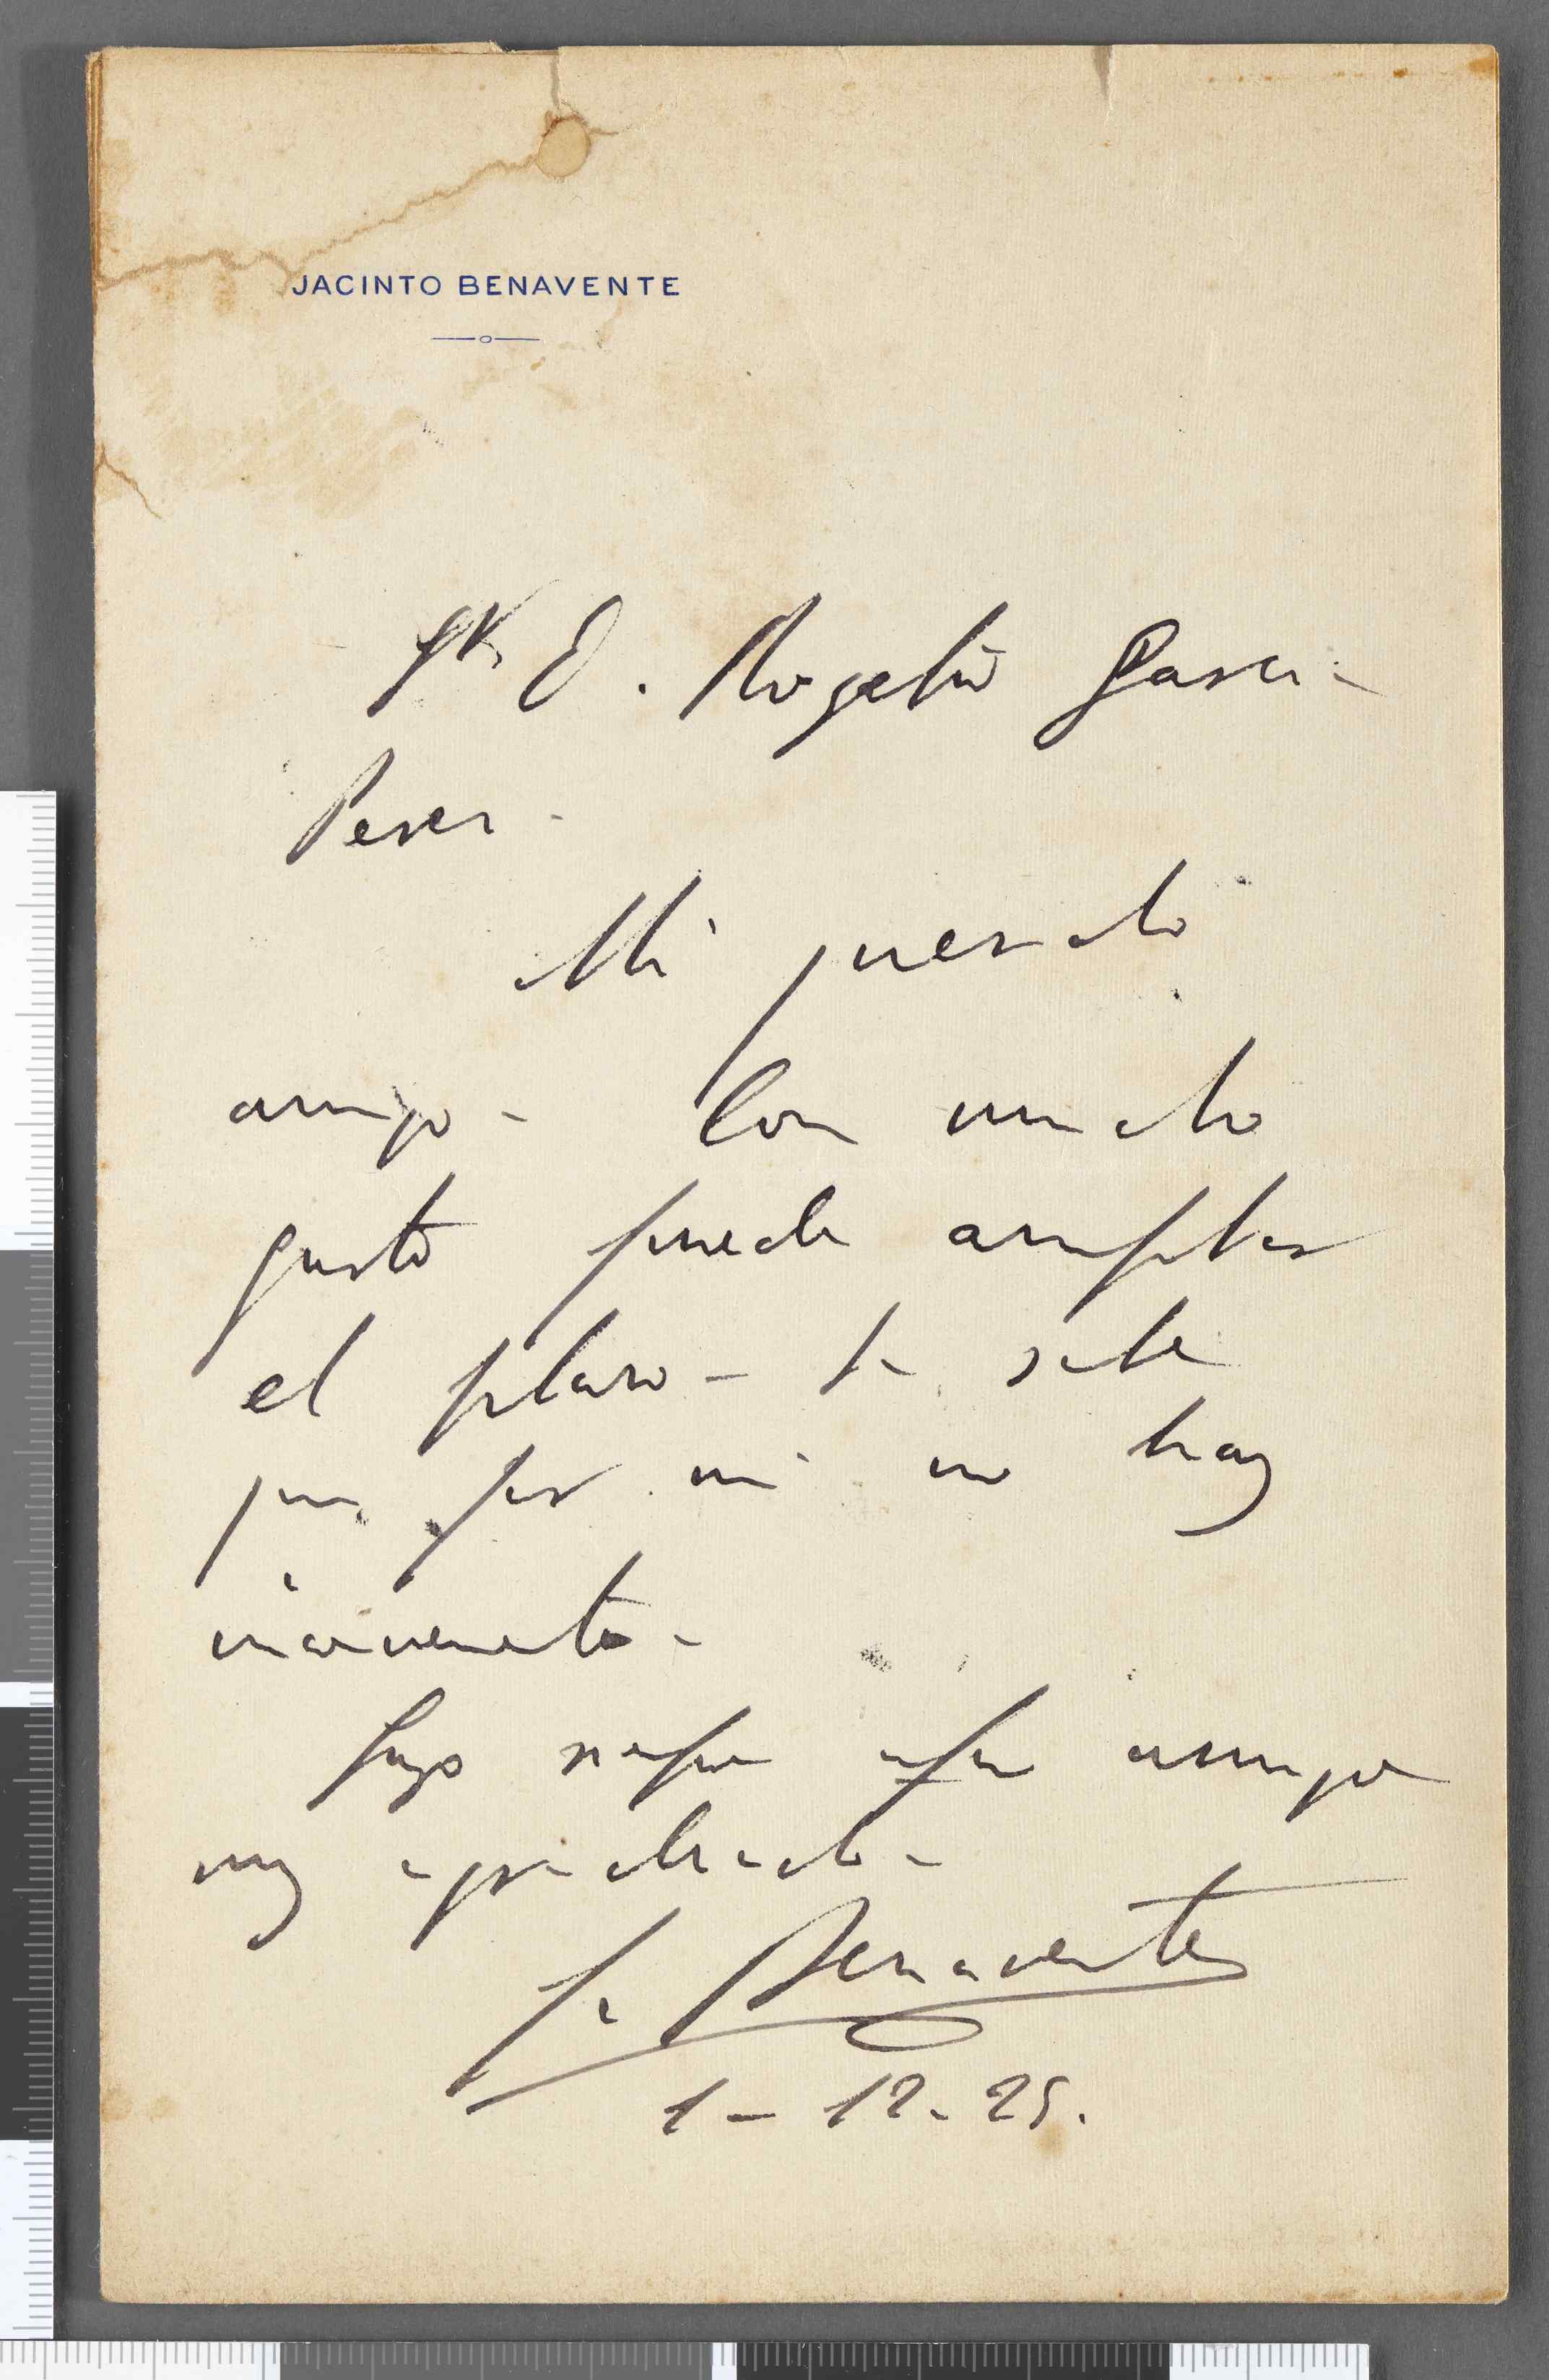 JACINTO BENAVENTE
Sr. D. Rogelio Garcia
Perez -
Mi querido
amigo - Con mucho
gusto puede ampliar
el plazo - Ya sabe
que por mi no hay
inconveniente -
Suyo siempre afmo amigo
muy agradecido -
J. Benavente
1 - 12 - 25.